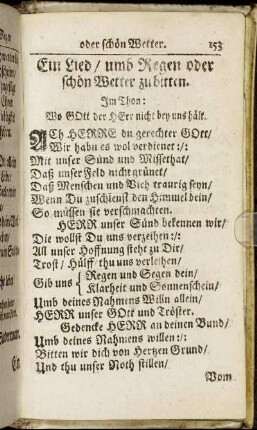 oder schön Wetter. 153
Ein Lied/ umb Regen oder
schön Wetter zu bitten.
Im Thon:
Wo GOtt der HErr nicht bey uns hält.
ACh HERRE du gerechter GOtt/
Wir habn es wol verdienet :/:
Mit unser Sünd und Missethat/
Daß unser Feld nicht grünet/
Daß Menschen und Vieh traurig seyn/
Wenn Du zuschleust den Himmel dein/
So müssen sie verschmachten.
HERR unser Sünd bekennen wir/
Die wollst Du uns verzeihen :/:
All unser Hoffnung steht zu Dir/
Trost/ Hülff thu uns verleihen/
Gib uns { Regen und Segen dein/
Klarheit und Sonnenschein/
Umb deines Nahmens Willn allein/
HERR unser GOtt und Tröster.
Gedencke HERR an deinen Bund/
Umb deines Nahmens willen :/:
Bitten wir dich von Hertzen Grund/
Und thu unser Noth stillen/
Vom